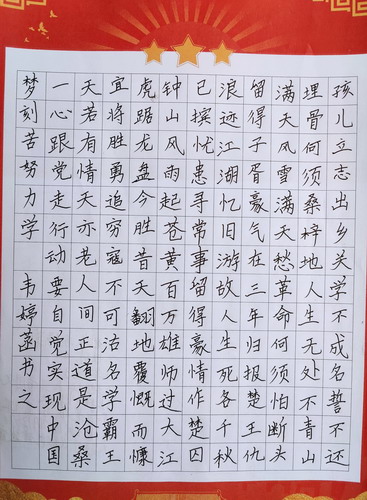 孩儿立志出乡关学不成名誓不还
埋骨何须桑梓地人生无处不青山
满天风雪满天愁革命何须怕断头
留得子胥豪气在三年归报楚王仇
浪迹江湖忆旧游故人生死各千秋
已摈忧患寻常事留得豪情作楚囚
钟山风雨起苍黄百万雄师过大江
虎踞龙盘今胜昔天翻地覆慨而慷
宜将胜勇追穷寇不可沽名学霸王
天若有情天亦老人间正道是沧桑
一心跟党走行动要自觉实现中国
梦刻苦努力学 韦婷菡书之